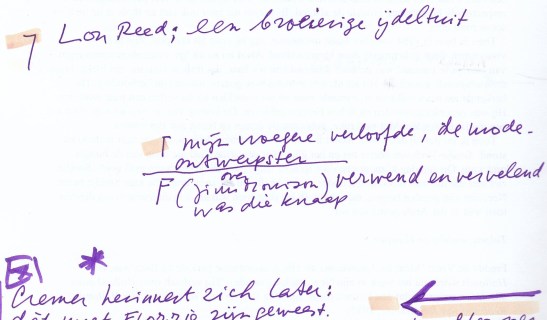 7 Lou Reed; een broeierige ijdeltuit
mijn vroegere verloofde, de mode-
ontwerpster
over
F (Jim Morrison) verwend en vervelend
was die knaap
E1 *
Cremer herinnert zich later:
dát moet Florrie zijn geweest.